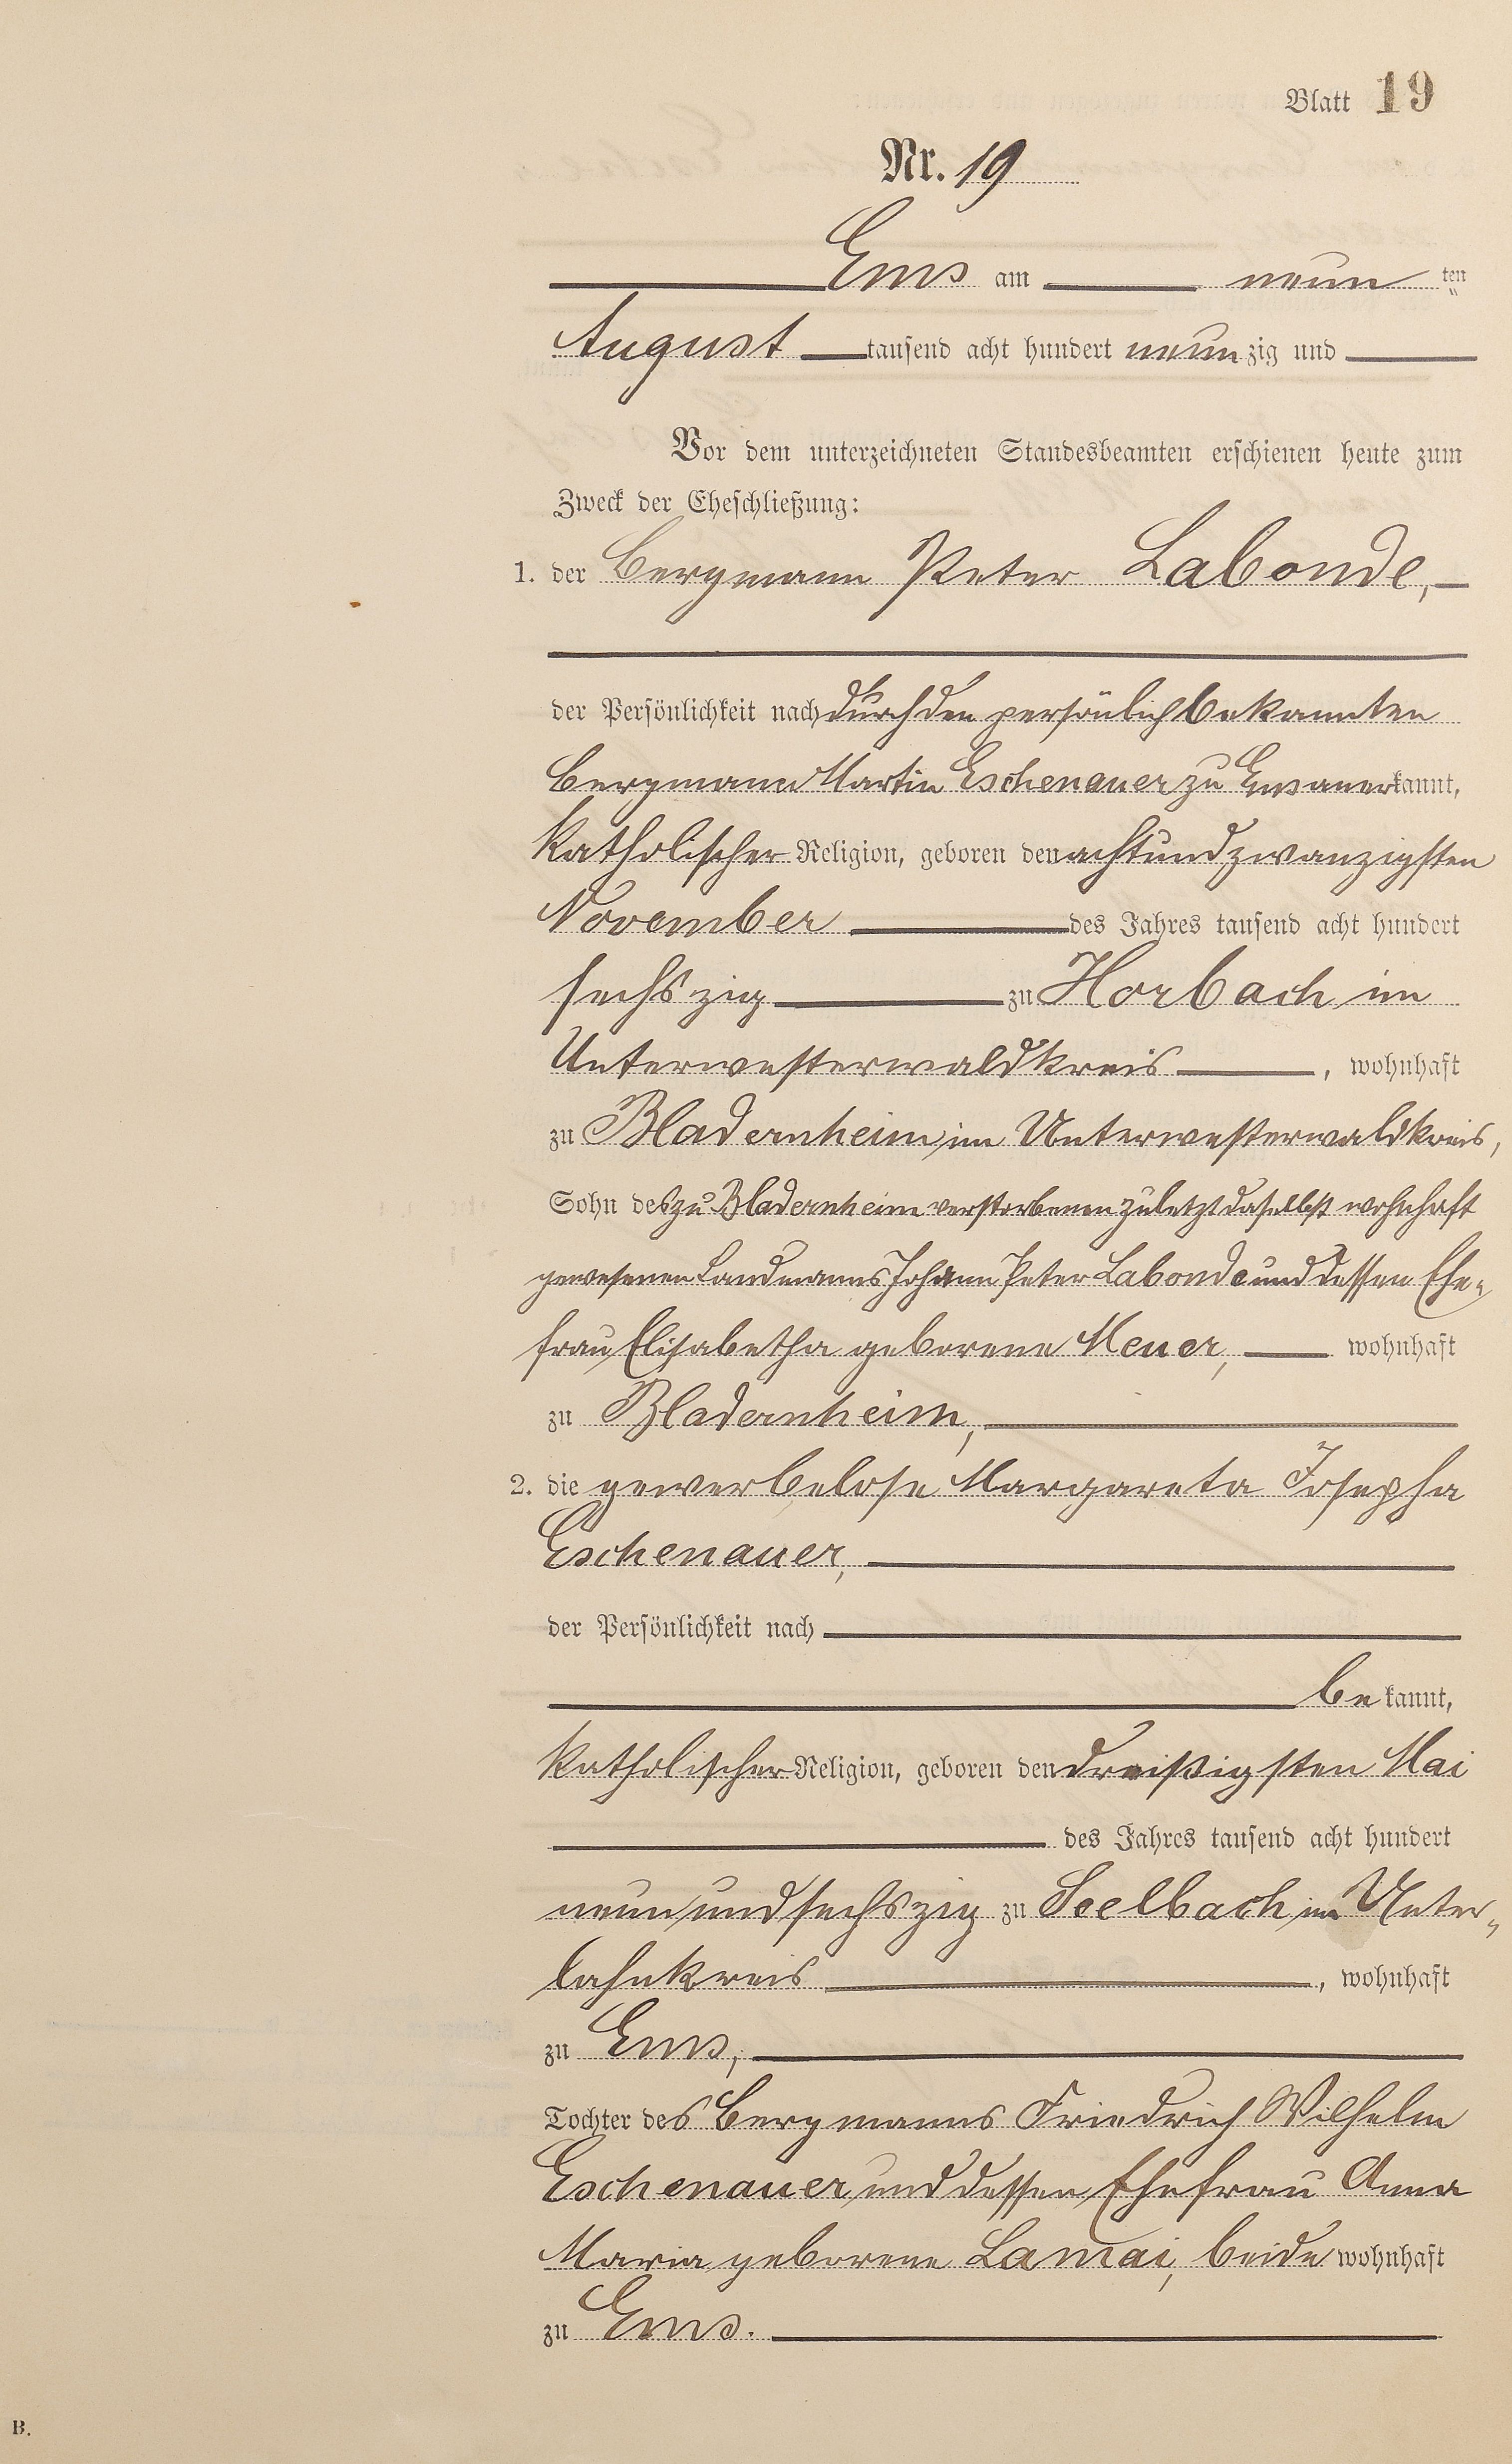 Blatt 19
Nr. 19
Ems am neun ten
August tausend acht hundert neunzig und
Vor dem unterzeichneten Standesbeamten erschienen heute zum
Zweck der Eheschließung:
1. der Bergmann Peter Labonde,
der Persönlichkeit nach durch den persönlich bekannten
Bergmann Martin Eschenauer zu Ems anerkannt,
katholischer Religion, geboren den achtundzwanzigsten
November des Jahres tausend acht hundert
sechszig zu Horbach im
Unterwesterwaldkreis, wohnhaft
zu Bladernheim im Unterwesterwaldkreis,
Sohn des zu Bladernheim verstorbenen zuletzt daselbst wohnhaft
gewesenen Landmanns Johann Peter Labonde und dessen Ehe-
frau Elisabetha geborene Meuer, wohnhaft
zu Bladernheim,
2. die gewerbelose Margareta Josepha
Eschenauer,
der Persönlichkeit nach
bekannt,
katholischer Religion, geboren den dreißigsten Mai
des Jahres tausend acht hundert
neunundsechszig zu Seelbach im Unter-
lahnkreis, wohnhaft
zu Ems,
Tochter des Bergmanns Friedrich Wilhelm
Eschenauer und dessen Ehefrau Anna
Maria geborene Lamai, beide wohnhaft
zu Ems.
B.